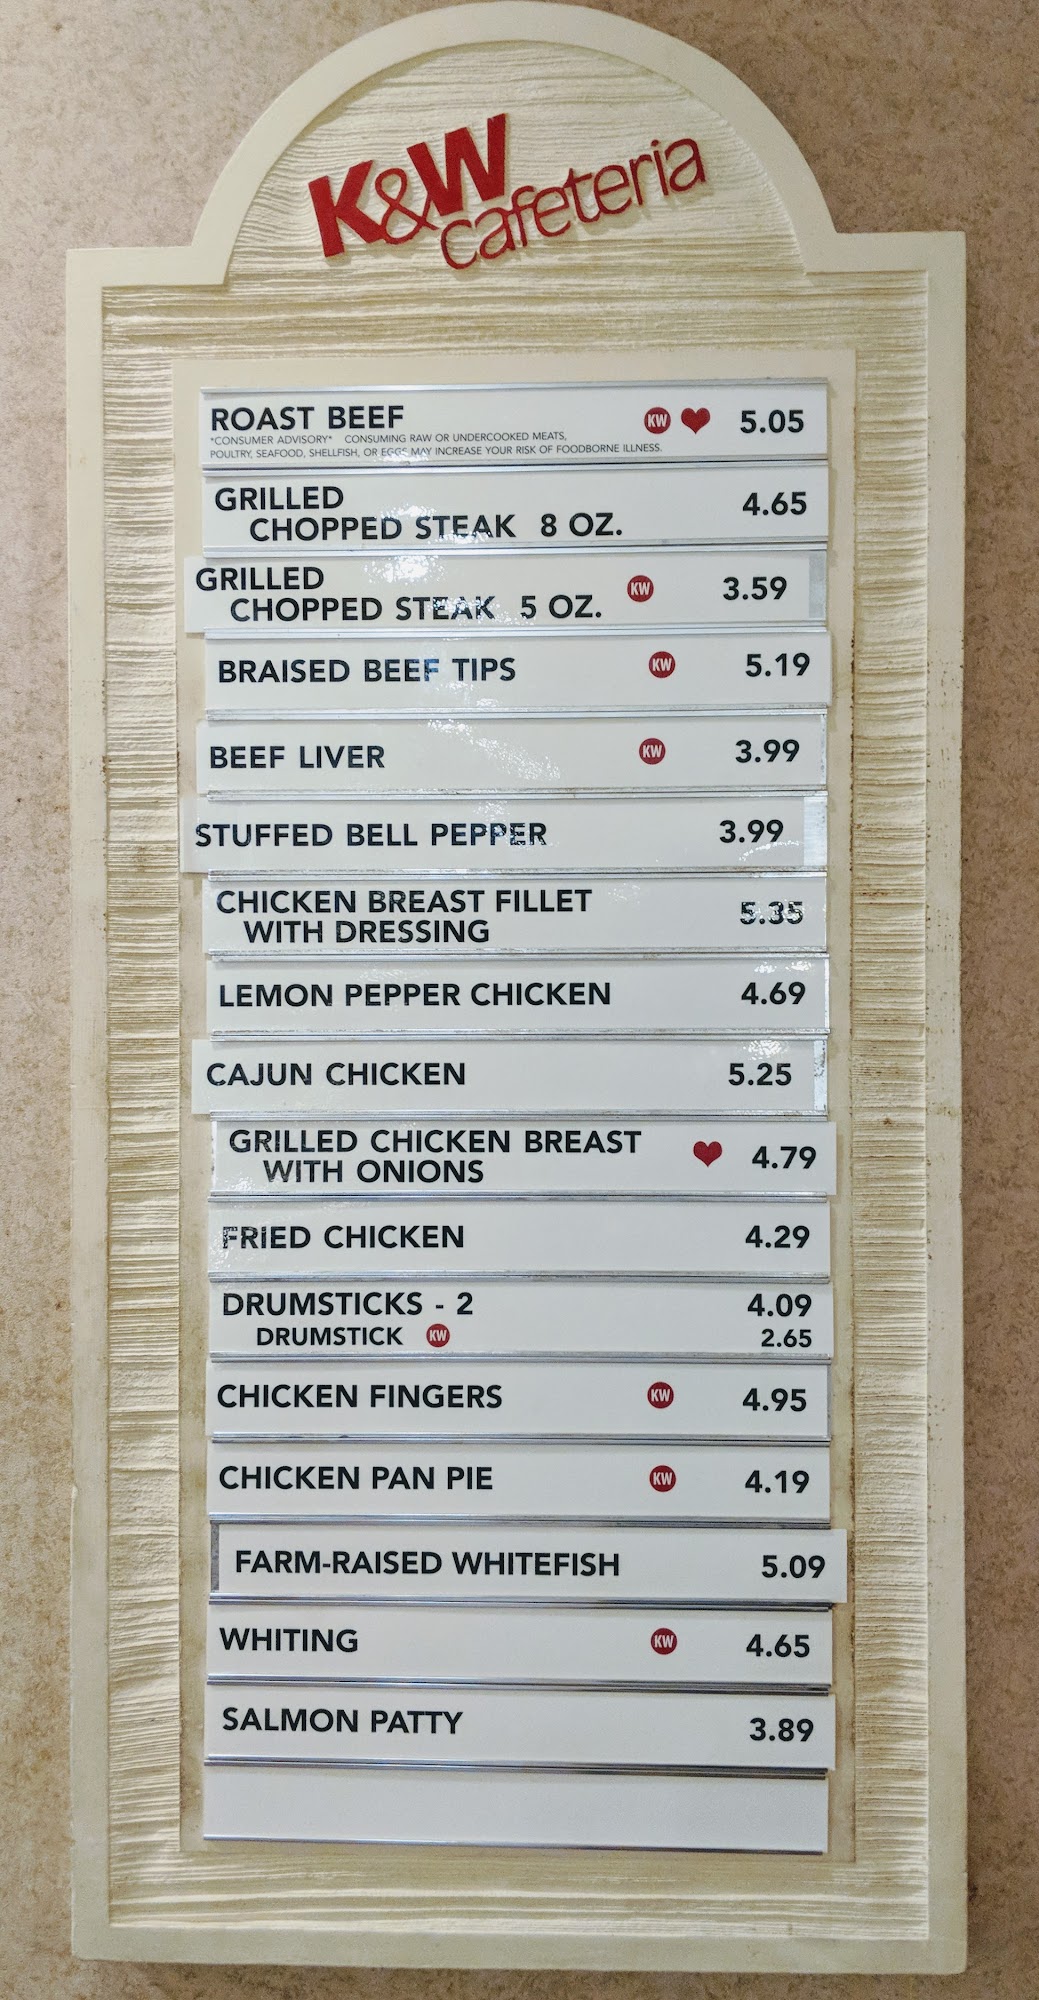 K&W
cafeteria
ROAST BEEF KW 5.05
*CONSUMER ADVISORY* CONSUMING RAW OR UNDERCOOKED MEATS,
POULTRY, SEAFOOD, SHELLFISH, OR EGGS MAY INCREASE YOUR RISK OF FOODBORNE ILLNESS.
GRILLED 4.65
CHOPPED STEAK 8 OZ.
GRILLED KW 3.59
CHOPPED STEAK 5 OZ.
BRAISED BEEF TIPS KW 5.19
BEEF LIVER KW 3.99
STUFFED BELL PEPPER 3.99
CHICKEN BREAST FILLET 5.35
WITH DRESSING
LEMON PEPPER CHICKEN 4.69
CAJUN CHICKEN 5.25
GRILLED CHICKEN BREAST 4.79
WITH ONIONS
FRIED CHICKEN 4.29
DRUMSTICKS - 2 4.09
DRUMSTICK KW 2.65
CHICKEN FINGERS KW 4.95
CHICKEN PAN PIE KW 4.19
FARM-RAISED WHITEFISH 5.09
WHITING KW 4.65
SALMON PATTY 3.89